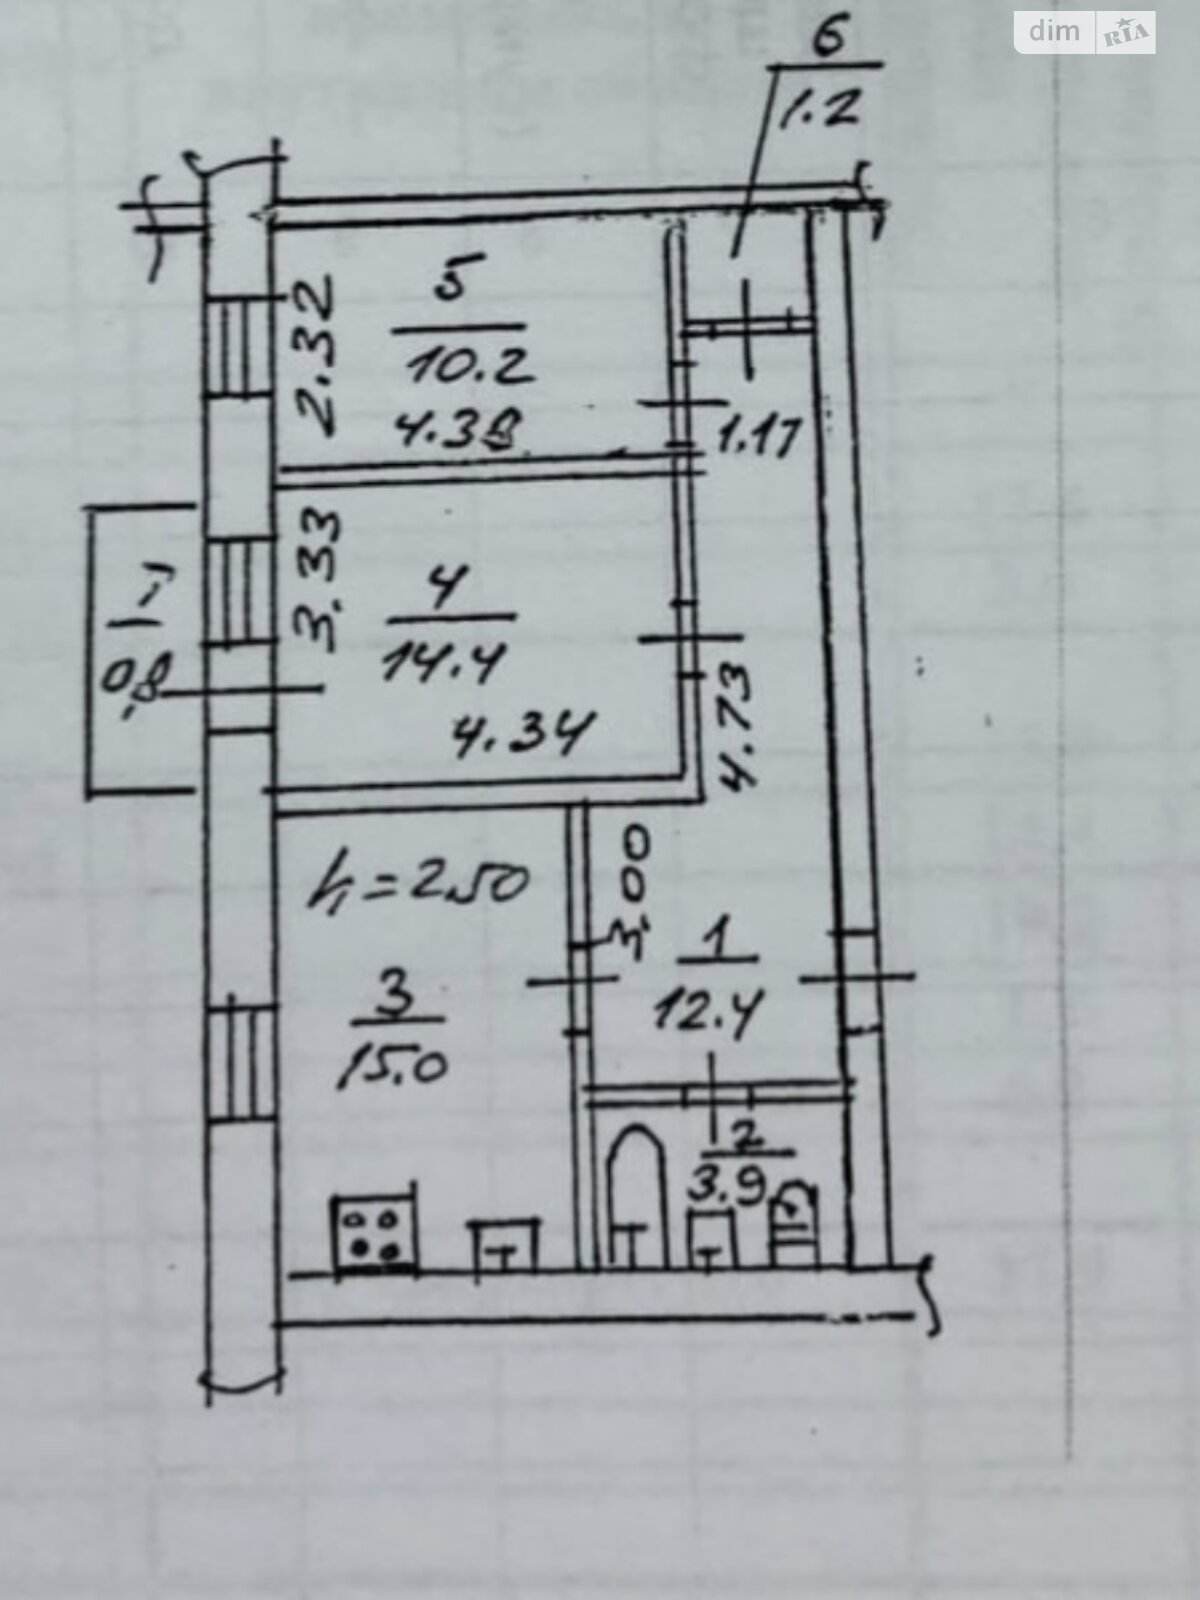 dim RIA
6
1.2
2.32
5
10.2
4.38
1.17
3.33
4
14.4
4.34
4.73
0,8
h=2.50
3.00
1
12.4
3
15.0
2
3.9